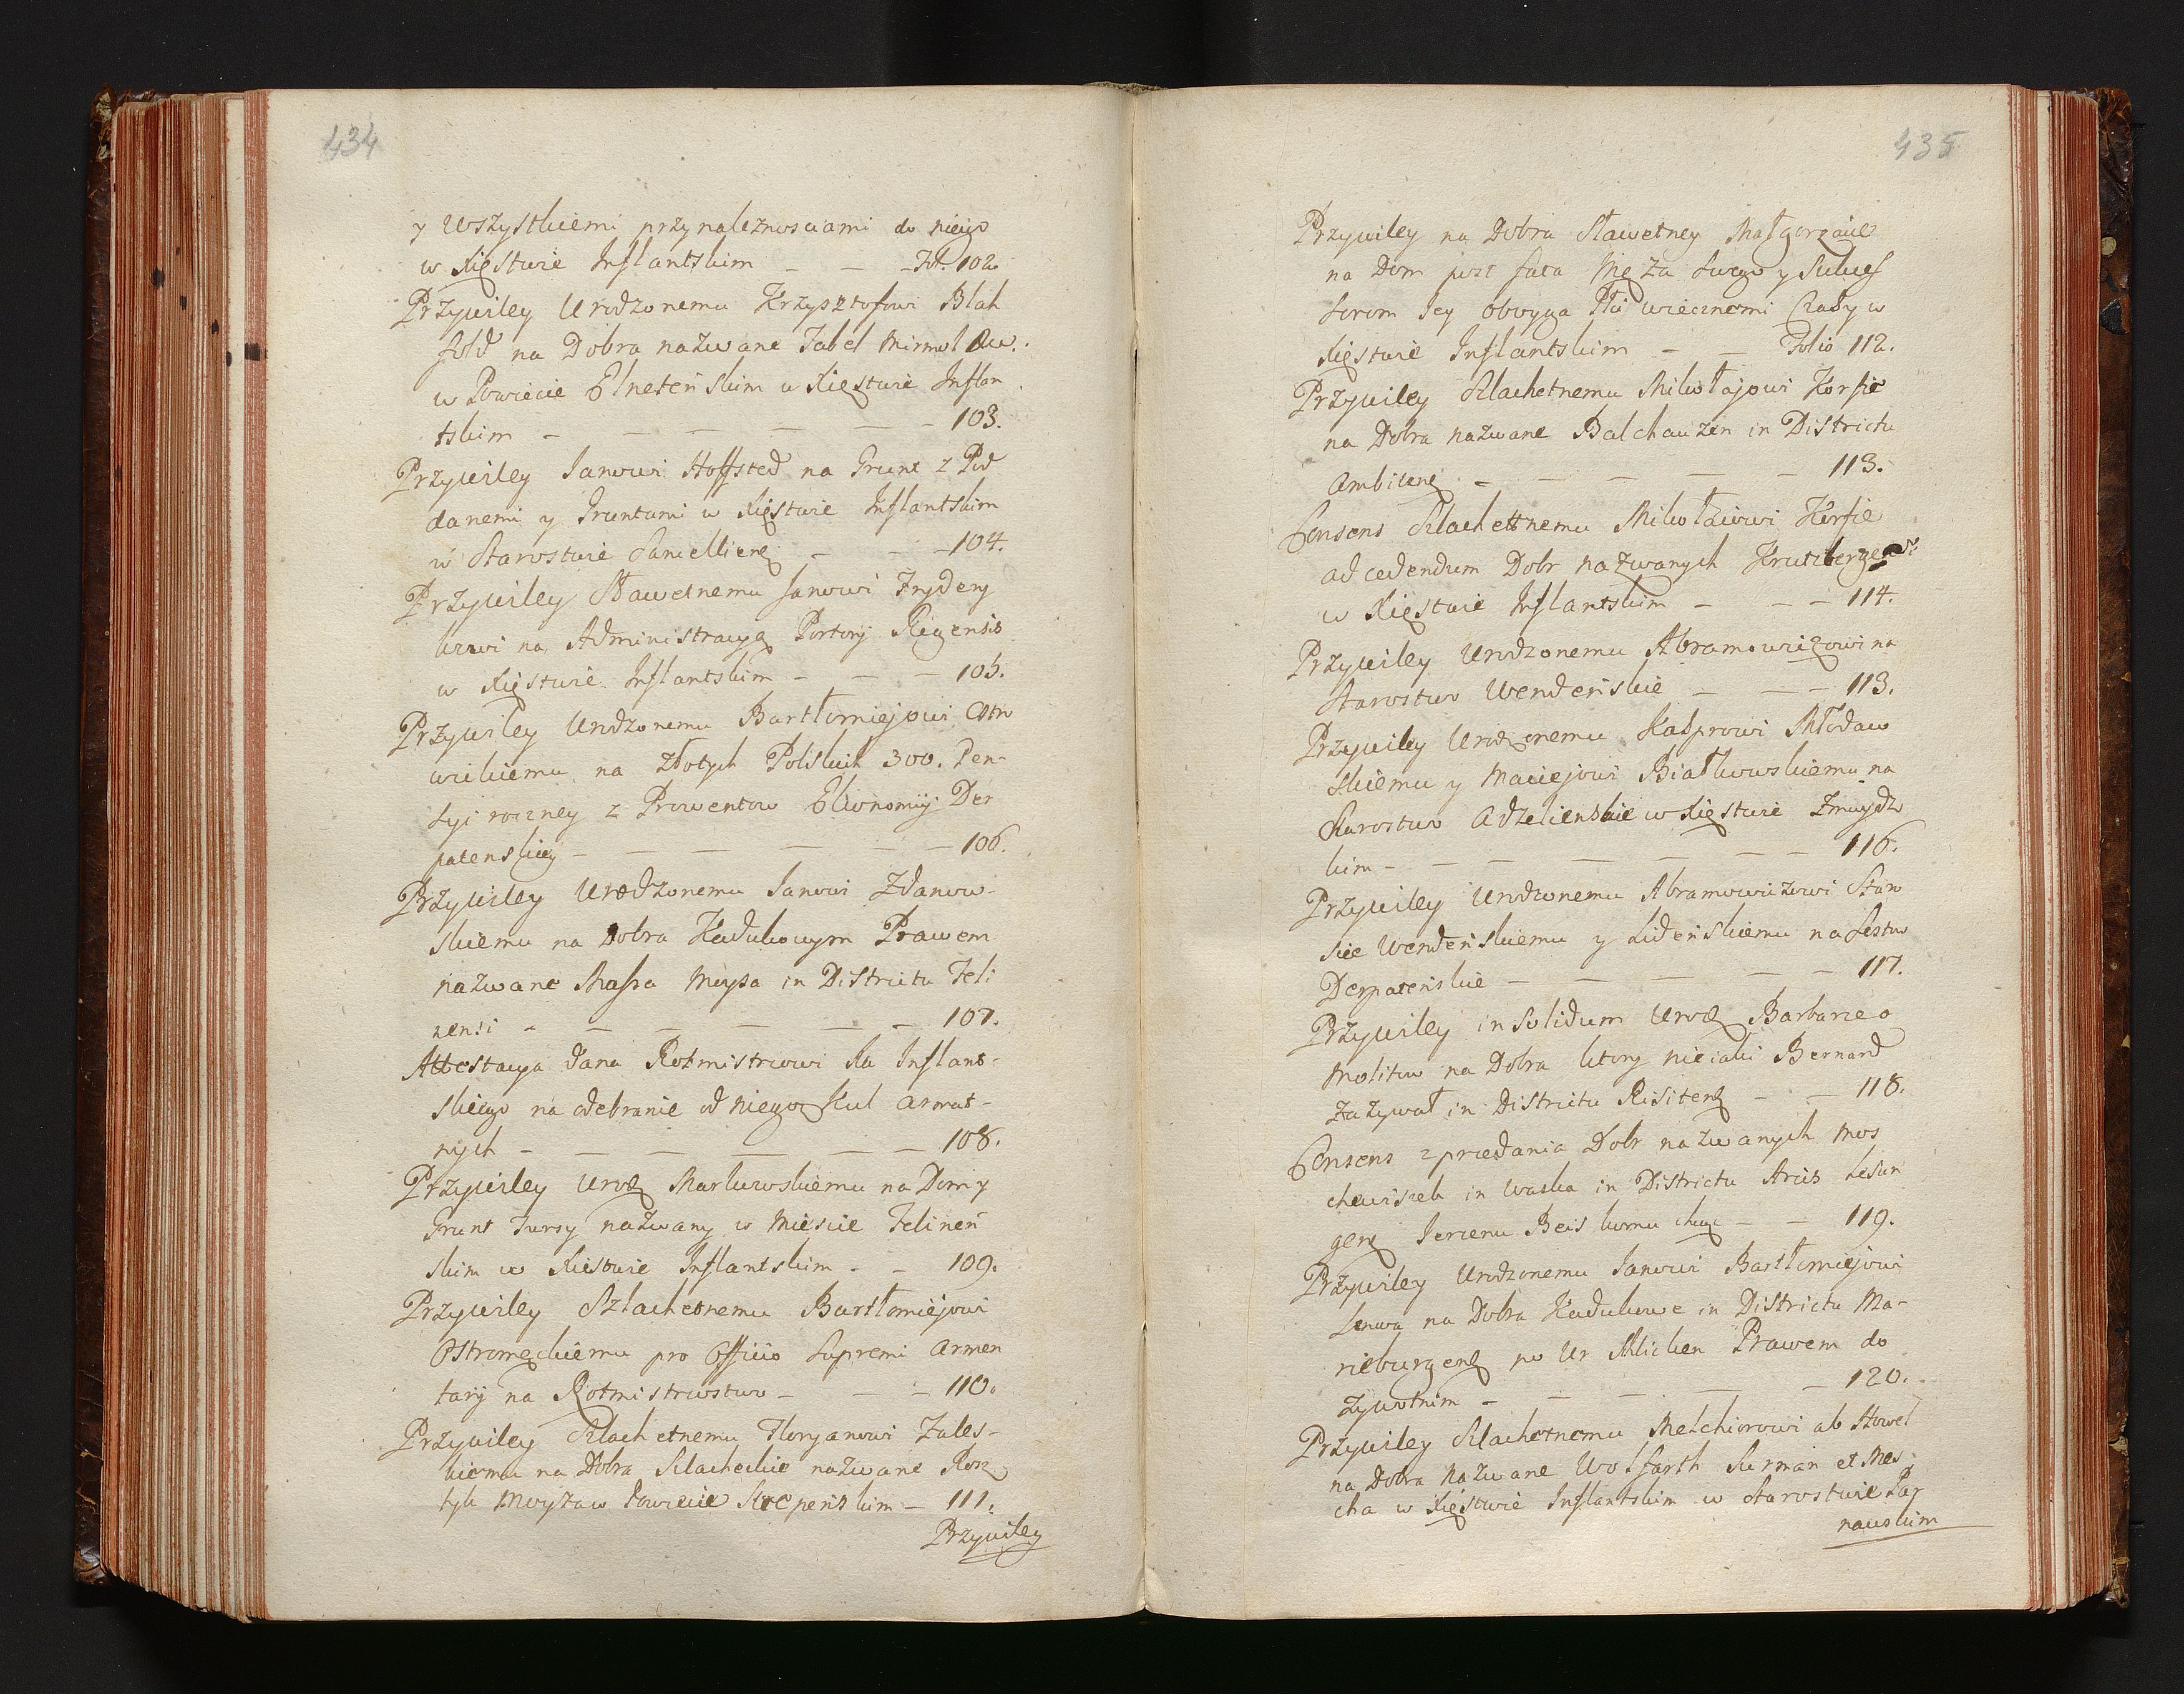 434
y Wszystkiemi przynaleznosciami do niego
w Xięstwie Inflantskim – – – Fol. 102
Przywiley Urodzonemu Krzysztofowi Blah
fold na Dobra nazwane Jabel
w Powiecie w Xięstwie Inflan
tskim – – – – – – 103.
Przywiley Janowi Hoffsted na Grunt z Pod
danemi y Gruntami w Xięstwie Inflantskim
w Starostwie – – – 104.
Przywiley Sławetnemu Janowi Frydery
kowi na Administracyą Portorij Rigensis
w Xięstwie Inflantskim – – – 105.
Przywiley Urodzonemu Bartłomiejowi Ostro
wickiemu na złotych Polskich 300. Pen-
syi roczney z Prowentow Ekonomij Der
patenskiey – – – – – – 106.
Przywiley Urodzonemu Janowi Zdanow-
skiemu na Dobra Kadukowym Prawem
nazwane Massa Muysa in Districtu Feli
nensi – – – – – – 107.
Attestacya dana Rotmistrzowi Xa Inflant-
skiego na odebranie od niego Kul armat-
nych – – – – – – 108.
Przywiley Urodz Markowskiemu na Dom y
Grunt Fursy nazwany w Miescie Felineń
skim w Xiestwie Inflantskim – – 109.
Przywiley Szlachetnemu Bartłomiejowi
Ostromęckiemu pro Officio Supremi Armen
tarij na Rotmistrzostwo – – – 110.
Przywiley Szlachetnemu Floryanowi Zales-
kiemu na Dobra Szlacheckie nazwane Rosz
tyk Moyza w Powiecie – 111.
Przywiley
435
Przywiley na Dobra Sławetney Małgorzacie
na Dom post fata Męża swego y Sukces
sorom Jey oboyga Płci wiecznemi Czasy w
Xięstwie Inflantskim – – Folio 112.
Przywiley Szlachetnemu Mikołajowi Korfie
na Dobra nazwane Balchauzen in Districtu
– – – – – 113.
Consens Szlachettnemu Mikołaiowi Korfie
ad cedendum Dobr nazwanych
w Xięstwie Inflantskim – – – 114.
Przywiley Urodzonemu Abramowiczowi na
Starostwo Wendeńskie – – – 113.
Przywiley Urodzonemu Kasprowi Młodaw
skiemu y Maciejowi Białkowskiemu na
Starostwo Adzelienskie w Xięstwie Zmuydz
kim – – – – – – – 116.
Przywiley Urodzonemu Abramowiczowi Staro
scie Wendeńskiemu y Lideńskiemu na Ststwo
Derpateńskie – – – – – 117.
Przywiley in Solidum Urodz Barbarze a
Molitow na Dobra ktory nieiaki Bernard
Zażywał in Districtu Risiteng – – 118.
Consens zprzedania Dobr nazwanych Mos
in Waska in Districtu Arcis Lesun
– – 119.
Przywiley Urodzonemu Janowi Bartłomiejowi
na Dobra Kadukowe in Districtu Ma-
rieburgeng po Ur Prawem do
żywotnim – – – – – 120.
Przywiley Szlachetnemu Melchiorowi ab
na Dobra nazwane Wolfarth et Mes
cha w Xięstwie Inflantskim w Starostwie Par
nauskim